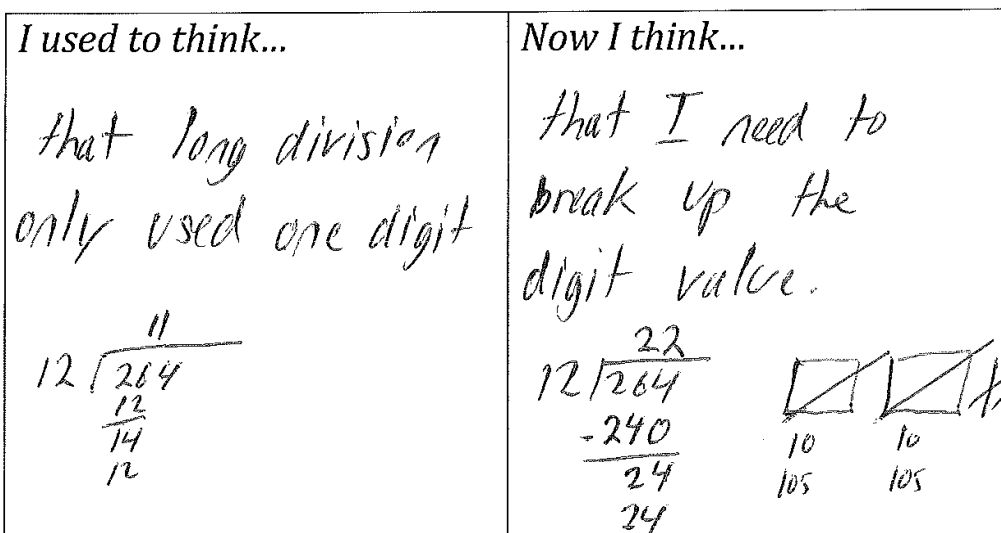 I used to think...
that long division
only used one digit
11
12 264
12
14
12
Now I think...
that I need to
break up the
digit value.
22
12 264
-240
24
24
10 10
105 105